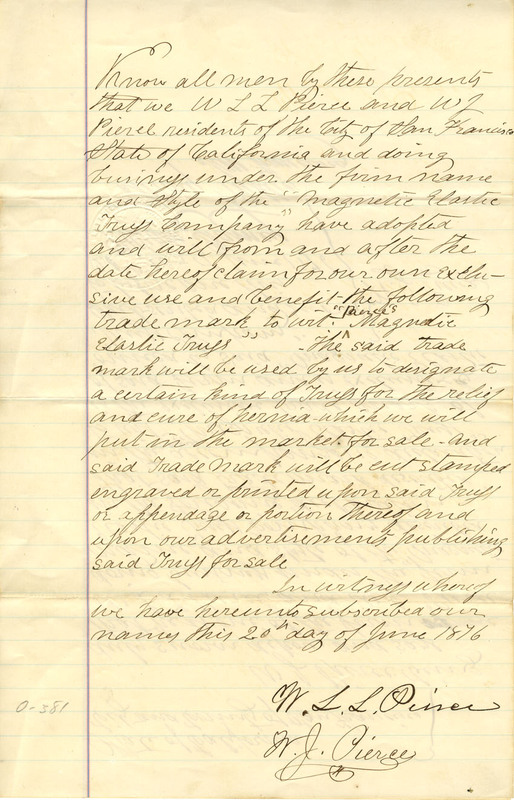 Know all men by these presents
that we W L L Pierce and W J
Pierce residents of the City of San Francisco
State of California and doing
business under the firm name
and style of the "Magnetic Elastic
Truss Company" have adopted
and will from and after the
date hereof claim for our own exclu-
sive use and benefit - the following
trade mark to wit: "Pierce's Magnetic
Elastic Truss" - The said trade
mark will be used by us to designate
a certain kind of Truss for the relief
and cure of hernia which we will
put in the market for sale - and
said Trade Mark will be cut stamped
engraved or printed upon said Truss
or appendage or portion thereof and
upon our advertisements, publishing
said Truss for sale
In witness whereof
we have hereunto subscribed our
names this 20th day of June 1876
W. L. L. Pierce
0-381
W. J. Pierce